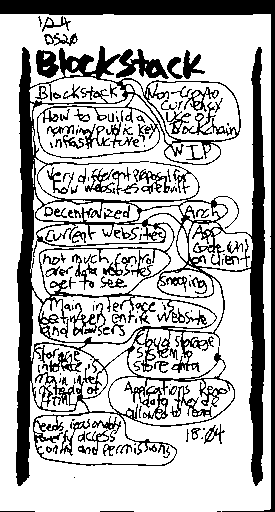 DS20
Blockstack
Blockstack
Non-Crypto
Currency
Use of
Blockchain
How to build a
naming/public key
infrastructure?
WIP
Very different proposal for
how websites are built
Decentralized
Arch
Current Websites
App
code
on client
not much control
over data websites
get to see
snooping
Main interface is
between entire website
and browsers
Cloud storage
system to
store data
Storage
interface is
main inter
instead of
HTML
Applications Read
data they're
allowed to read
18:04
needs reasonably
powerful access
control and Permissions